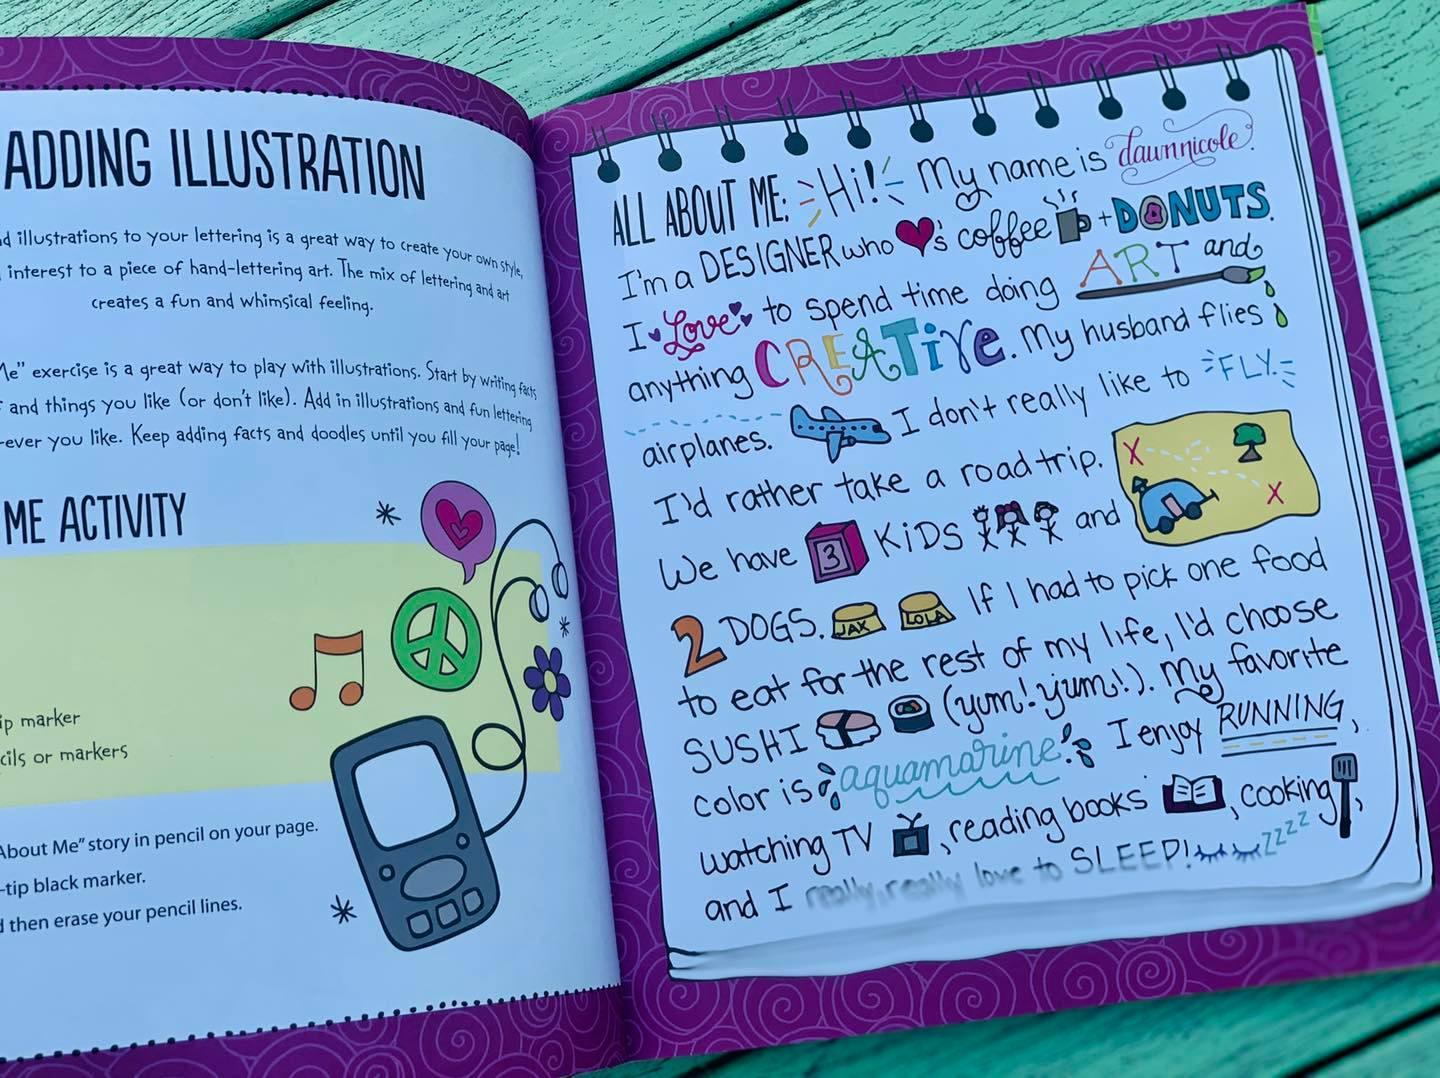 ADDING ILLUSTRATION
illustrations to your lettering is a great way to create your own style,
interest to a piece of hand-lettering art. The mix of lettering and art
creates a fun and whimsical feeling.
Me" exercise is a great way to play with illustrations. Start by writing facts
and things you like (or don't like). Add in illustrations and fun lettering
ever you like. Keep adding facts and doodles until you fill your page!
ME ACTIVITY
marker
or markers
About Me" story in pencil on your page.
-tip black marker.
then erase your pencil lines.
ALL ABOUT ME: Hi! My name is dawnnicole.
I'm a DESIGNER who 's coffee + DONUTS.
I Love to spend time doing ART and
anything CREATIVE. My husband flies
airplanes. I don't really like to FLY.
I'd rather take a road trip. X X
We have 3 KIDS and
2 DOGS. JAX LOLA If I had to pick one food
to eat for the rest of my life, I'd choose
SUSHI (yum! yum!). My favorite
color is aquamarine. I enjoy RUNNING,
watching TV, reading books, cooking,
and I really, really love to SLEEP! zzzz